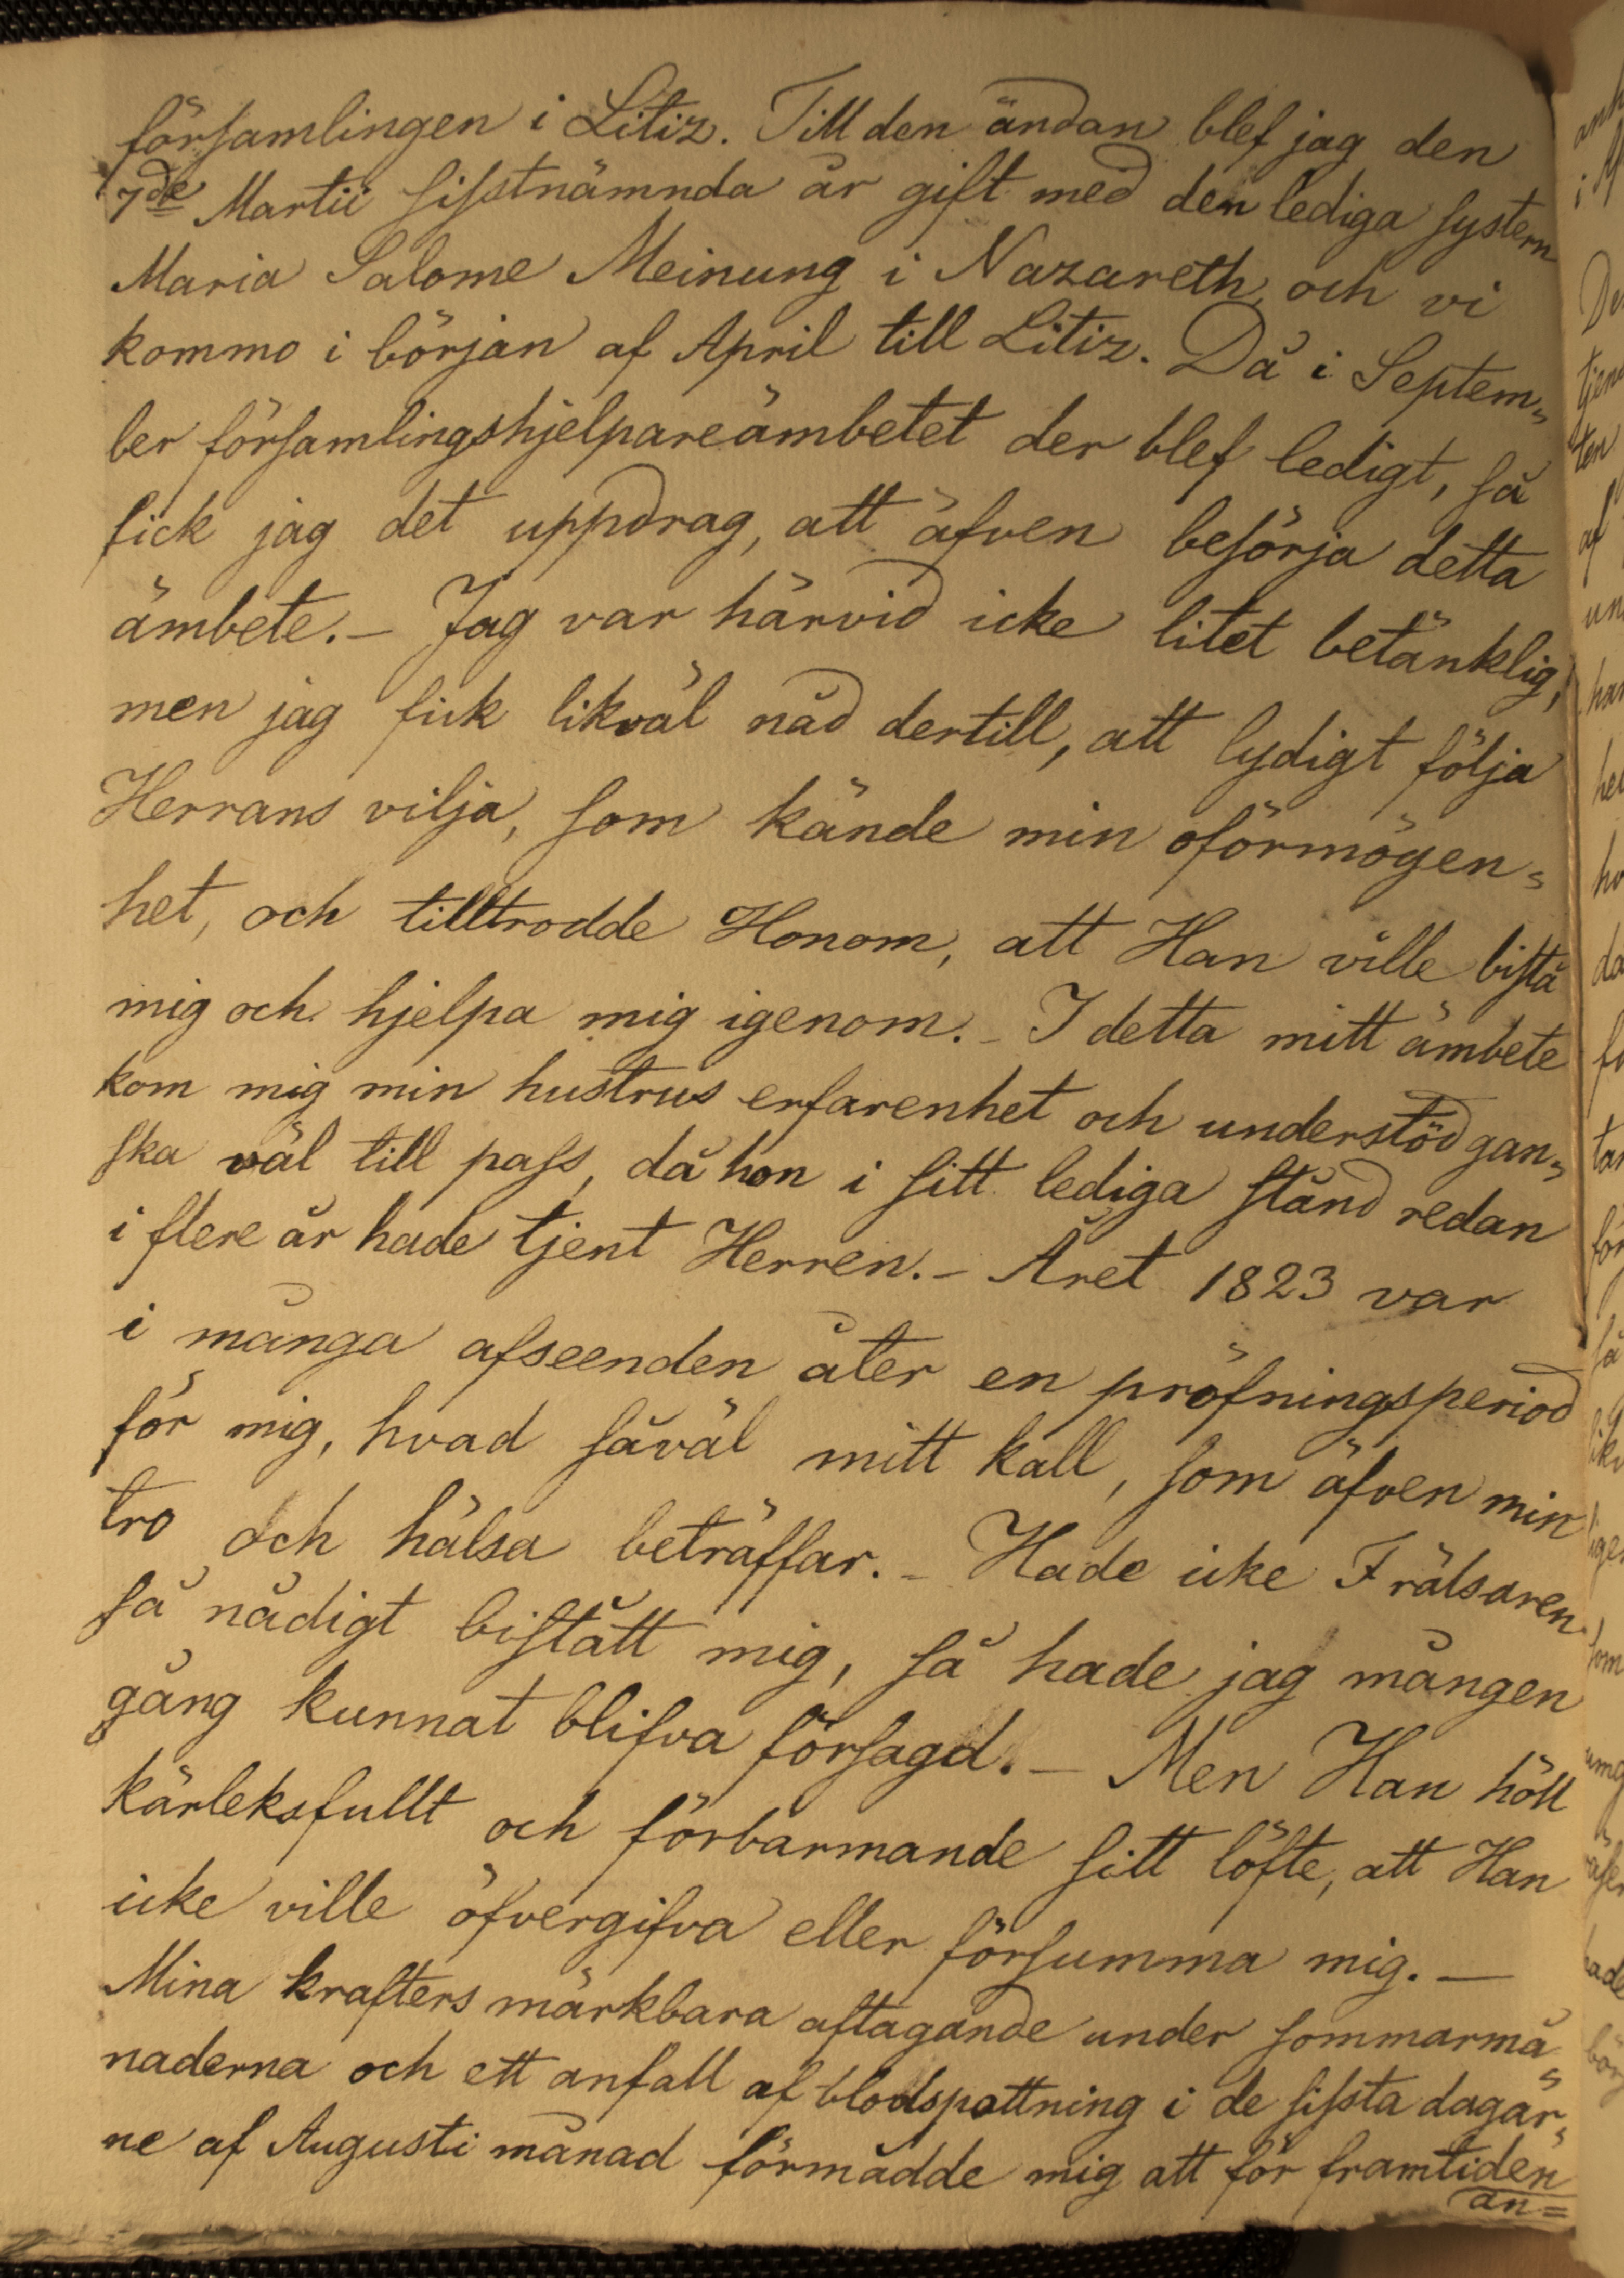 församlingen i Litiz. Till den ändan blef jag den
7de Martii sisstnämnda år gift med den lediga systern
Maria Salome Meinung i Nazareth, och vi
kommo i början af April till Litiz. Då i Septem=
ber församlingshjelpareämbetet der blef ledigt, så
fick jag det uppdrag, att äfven besörja detta
ämbete. – Jag var härvid icke litet betänklig,
men jag fick likväl nåd dertill, att lydigt följa
Herrans vilja, som kände min oförmögen=
het, och tilltrodde Honom, att Han ville bistå
mig och hjelpa mig igenom. – I detta mitt ämbete
kom mig min hustrus erfarenhet och understöd gan=
ska väl till pass, då hon i sitt lediga stånd redan
i flere år hade tjent Herren. – Året 1823 var
i många afseenden åter en pröfningsperiod
för mig, hvad såväl mitt kall, som äfven min
tro och hälsa beträffar. – Hade icke Frälsaren
så nådigt bistått mig, så hade jag mången
gång kunnat blifva försagd. – Men Han höll
kärleksfullt och förbarmande sitt löfte, att Han
icke ville öfvergifva eller försumma mig. –
Mina krafters märkbara aftagande under sommarmå=
naderna och ett anfall af blodspottning i de sissta dagar=
ne af Augusti månad förmådde mig att för framtiden
an=